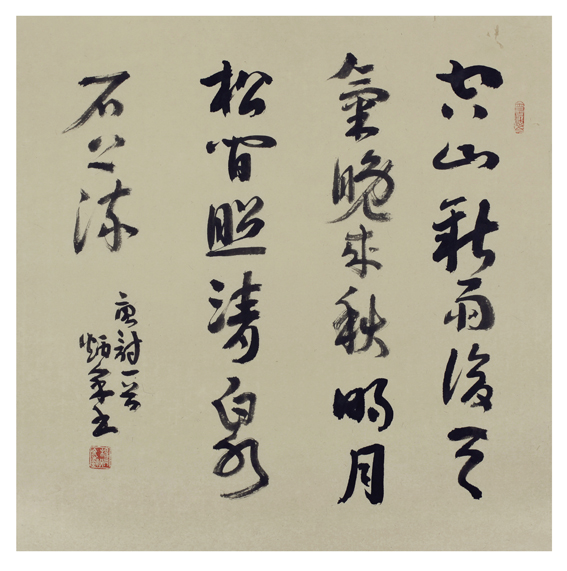 空山新雨後天
氣晚來秋明月
松間照清泉
石上流
唐詩一首
炳